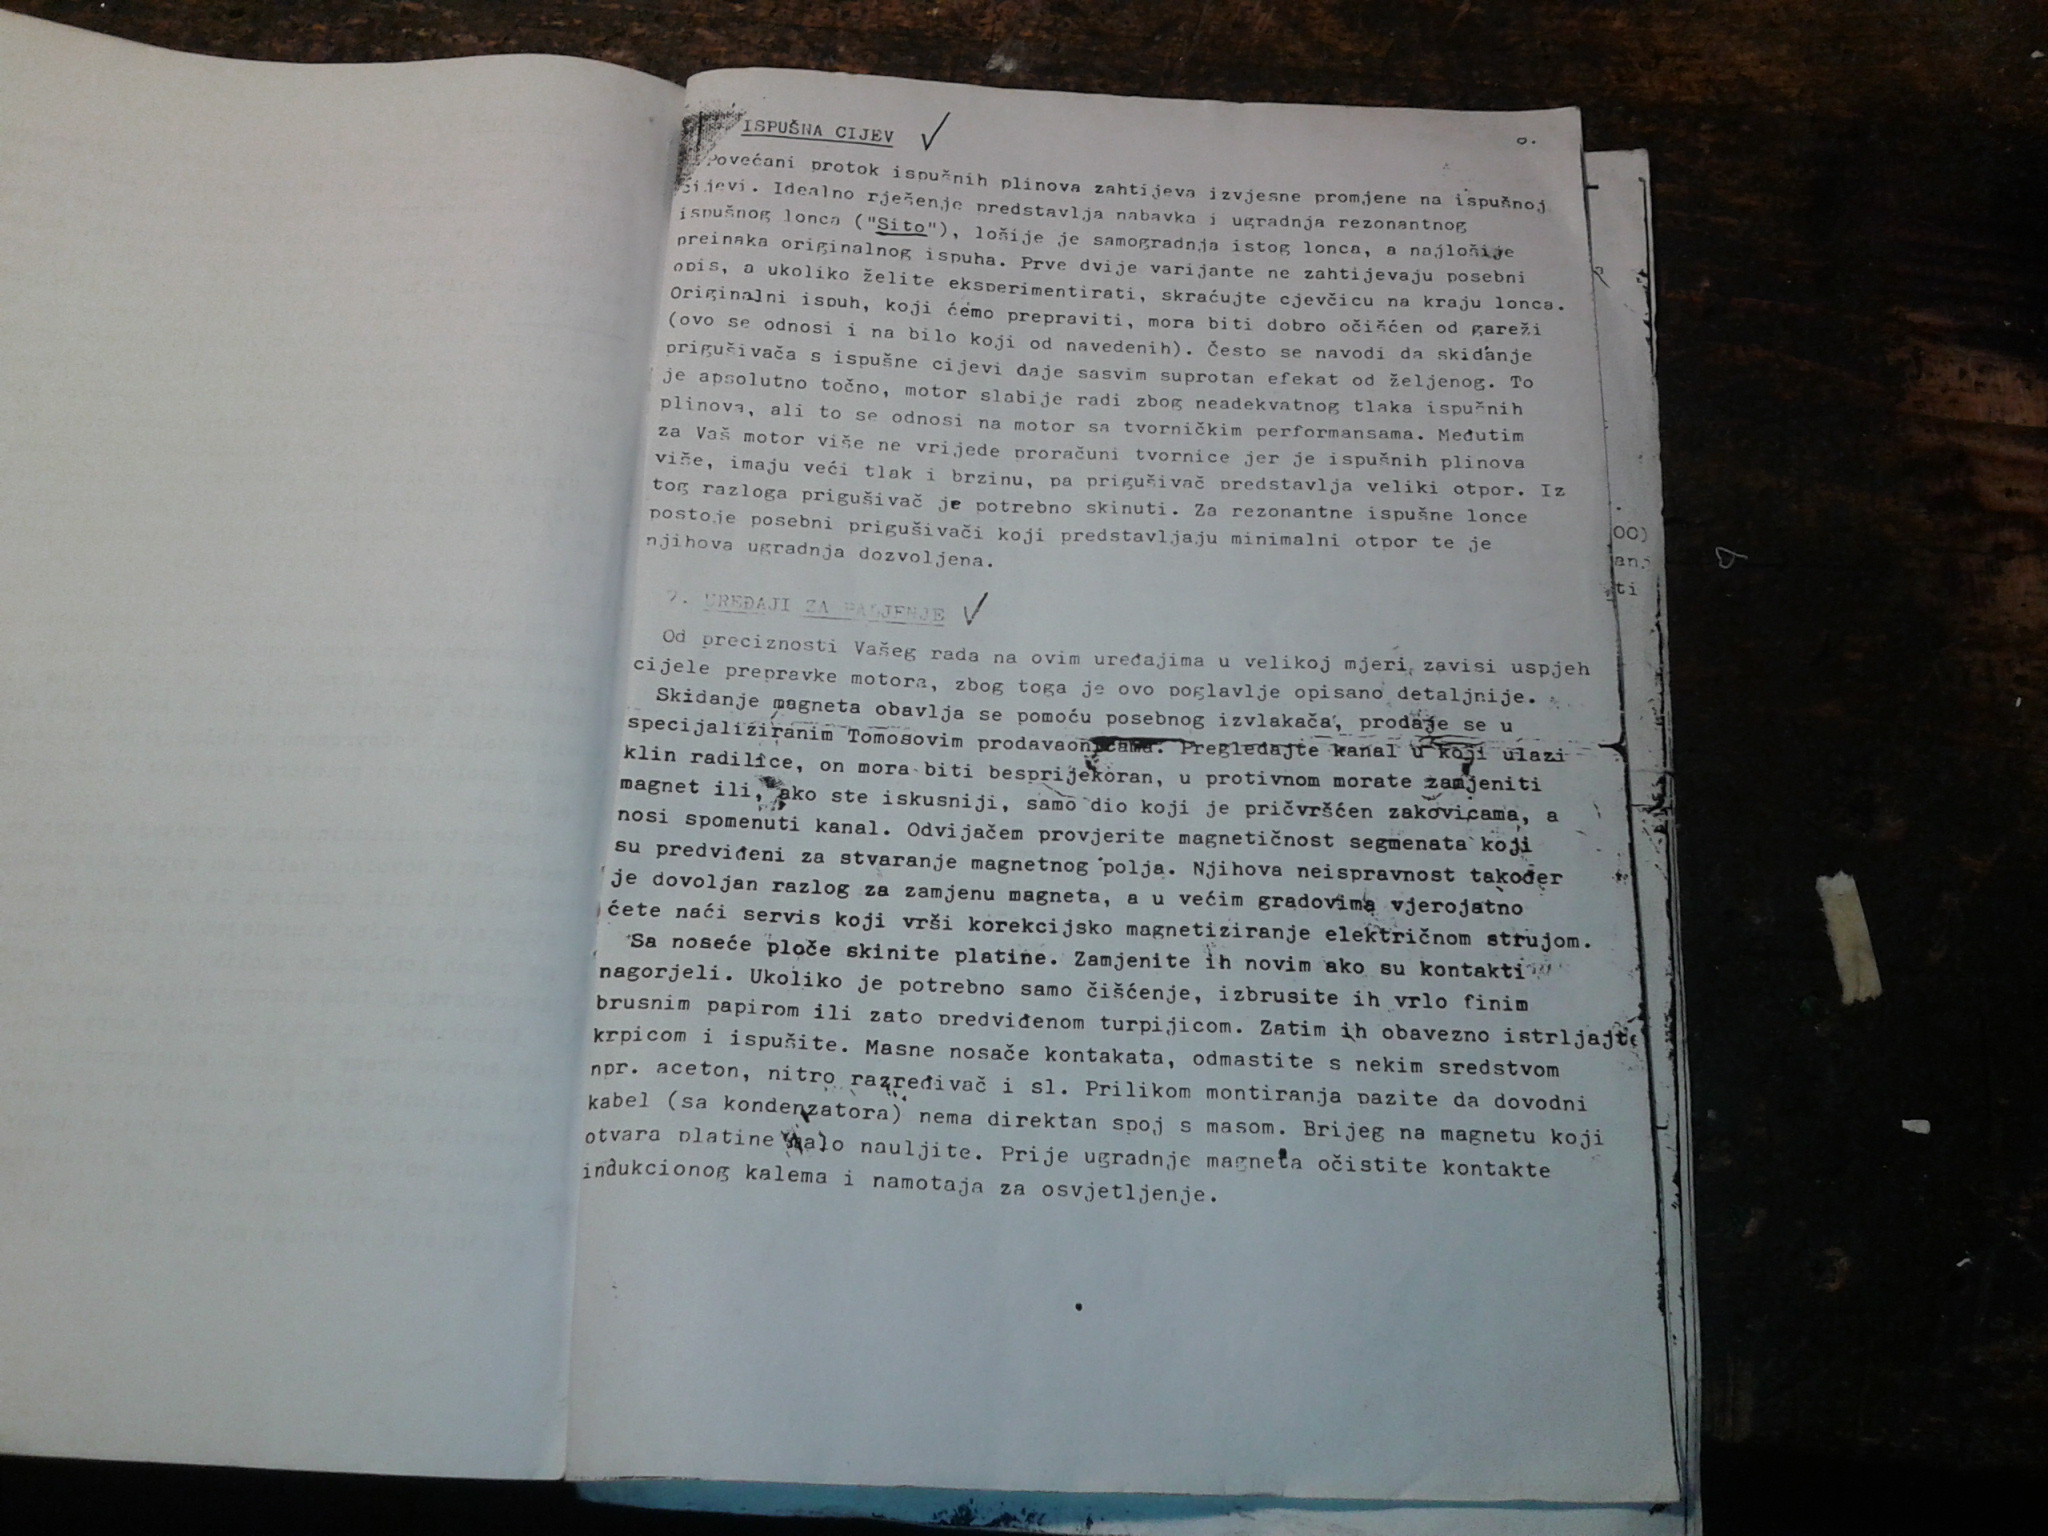 ISPUŠNA CIJEV
Povećani protok ispušnih plinova zahtijeva izvjesne promjene na ispušnoj
cijevi. Idealno rješenje predstavlja nabavka i ugradnja rezonantnog
ispušnog lonca ("Sito"), lošije je samogradnja istog lonca, a najlošije
preinaka originalnog ispuha. Prve dvije varijante ne zahtijevaju posebni
opis, a ukoliko želite eksperimentirati, skraćujte cjevčicu na kraju lonca.
Originalni ispuh, koji ćemo prepraviti, mora biti dobro očišćen od gareži
(ovo se odnosi i na bilo koji od navedenih). Često se navodi da skidanje
prigušivača s ispušne cijevi daje sasvim suprotan efekat od željenog. To
je apsolutno točno, motor slabije radi zbog neadekvatnog tlaka ispušnih
plinova, ali to se odnosi na motor sa tvorničkim performansama. Međutim
za Vaš motor više ne vrijede proračuni tvornice jer je ispušnih plinova
više, imaju veći tlak i brzinu, pa prigušivač predstavlja veliki otpor. Iz
tog razloga prigušivač je potrebno skinuti. Za rezonantne ispušne lonce
postoje posebni prigušivači koji predstavljaju minimalni otpor te je
njihova ugradnja dozvoljena.
7. UREĐAJI ZA PALJENJE
Od preciznosti Vašeg rada na ovim uređajima u velikoj mjeri zavisi uspjeh
cijele prepravke motora, zbog toga je ovo poglavlje opisano detaljnije.
Skidanje magneta obavlja se pomoću posebnog izvlakača, prodaje se u
specijaliziranim Tomosovim prodavaonicama. Pregledajte kanal u koji ulazi
klin radilice, on mora biti besprijekoran, u protivnom morate zamjeniti
magnet ili, ako ste iskusniji, samo dio koji je pričvršćen zakovicama, a
nosi spomenuti kanal. Odvijačem provjerite magnetičnost segmenata koji
su predviđeni za stvaranje magnetnog polja. Njihova neispravnost također
je dovoljan razlog za zamjenu magneta, a u većim gradovima vjerojatno
ćete naći servis koji vrši korekcijsko magnetiziranje električnom strujom.
Sa noseće ploče skinite platine. Zamjenite ih novim ako su kontakti
nagorjeli. Ukoliko je potrebno samo čišćenje, izbrusite ih vrlo finim
brusnim papirom ili zato predviđenom turpijicom. Zatim ih obavezno istrljajte
krpicom i ispušite. Masne nosače kontakata, odmastite s nekim sredstvom
npr. aceton, nitro razređivač i sl. Prilikom montiranja pazite da dovodni
kabel (sa kondenzatora) nema direktan spoj s masom. Brijeg na magnetu koji
otvara platine malo nauljite. Prije ugradnje magneta očistite kontakte
indukcionog kalema i namotaja za osvjetljenje.
OO)
ti